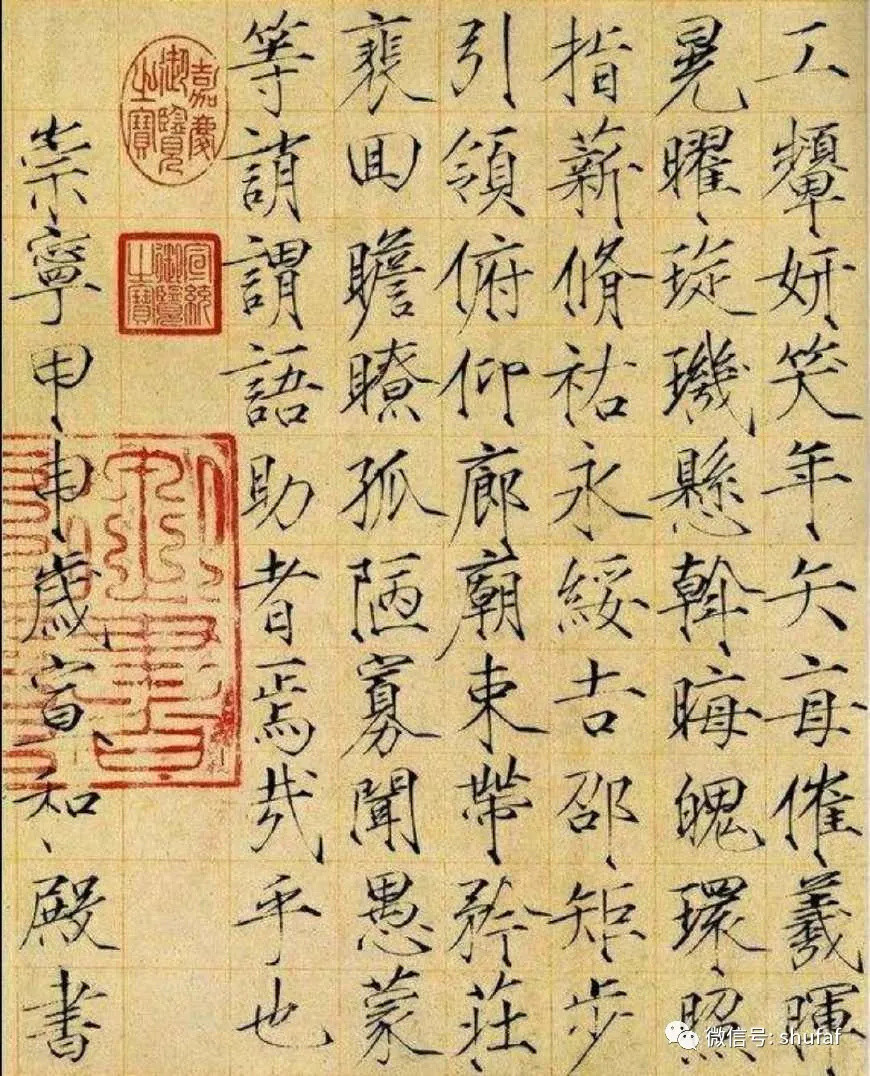 工顰妍笑年矢每催羲暉
晃曜琁璣懸斡晦魄環照
指薪脩祐永綏吉邵矩步
引領俯仰廊廟束帶矜莊
裵回瞻瞭孤陋寡聞愚蒙
等誚謂語助者焉哉乎也
嘉慶御覽之寶
宣統御覽之寶
崇寧甲申歲宣和殿書
微信号: shufaf